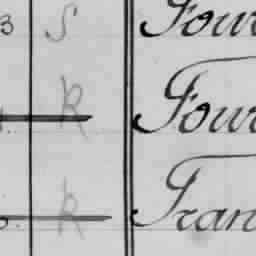 3 S Four
R Four
R Fran